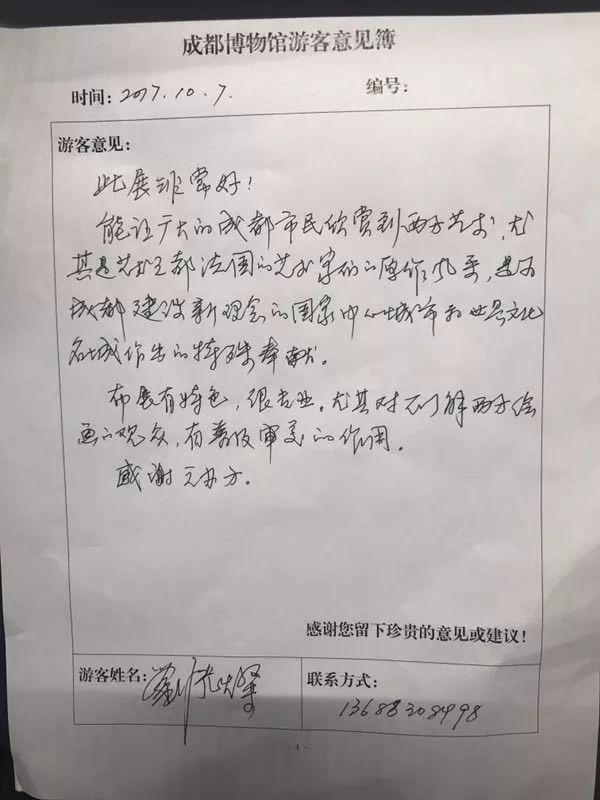 成都博物馆游客意见簿
时间: 2017.10.7.
编号:
游客意见:
此展非常好!
能让广大的成都市民欣赏到西方艺术,尤
其是艺术之都法国的艺术家们的原作风采,是为
成都建设新理念的国家中心城市和世界文化
名城作出的特殊奉献。
布展有特色,很专业。尤其对不了解西方绘
画的观众,有普及审美的作用。
感谢主办方。
感谢您留下珍贵的意见或建议!
游客姓名: 刘
联系方式:
13688308498
- 4 -